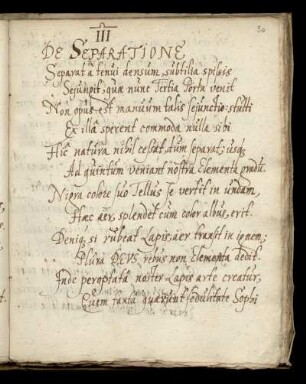 20
III
DE SEPARATIONE
Separat à tenui densum, subtilia spissis
Sejungit, quæ nunc Tertia Porta venit
Non opus est manuum talis sejunctio: stulti
Ex illâ sperent commoda nulla sibi
Hîc natura nihil cessat, dum separat: usq;
Ad quintum veniant nostra Elementa gradū.
Nigra colore suo Tellus se vertit in undam,
Hæc aer, splendet cùm color albus, erit.
Deniq; si rubeat Lapis, aer transit in ignem;
Plura DEVS rebus non Elementa dedit.
Inde peroptatus noster Lapis arte creatur,
Quem tantâ quærunt sedulitate Sophi